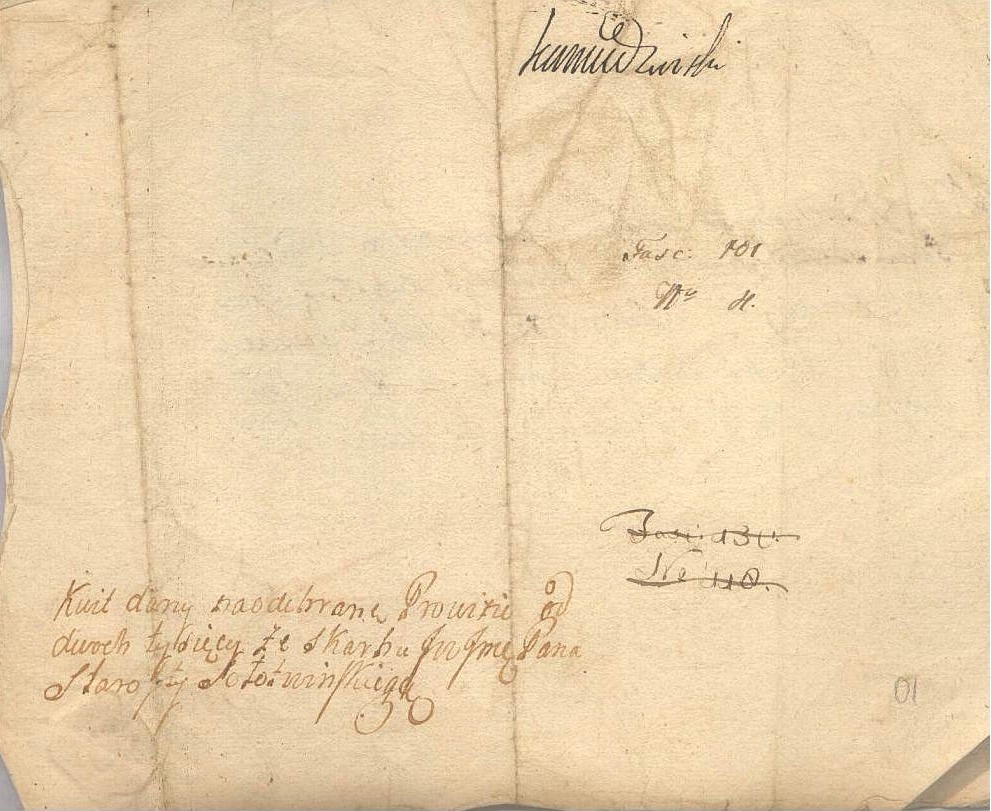 Fasc: 101
Nro 4.
Fasc: 131.
No 110.
Kwit dany na odebraną Prowizię od
dwoch tysięcy ze Skarbu Jw Jmę Pana
Starosty Sołotwinskiego
01